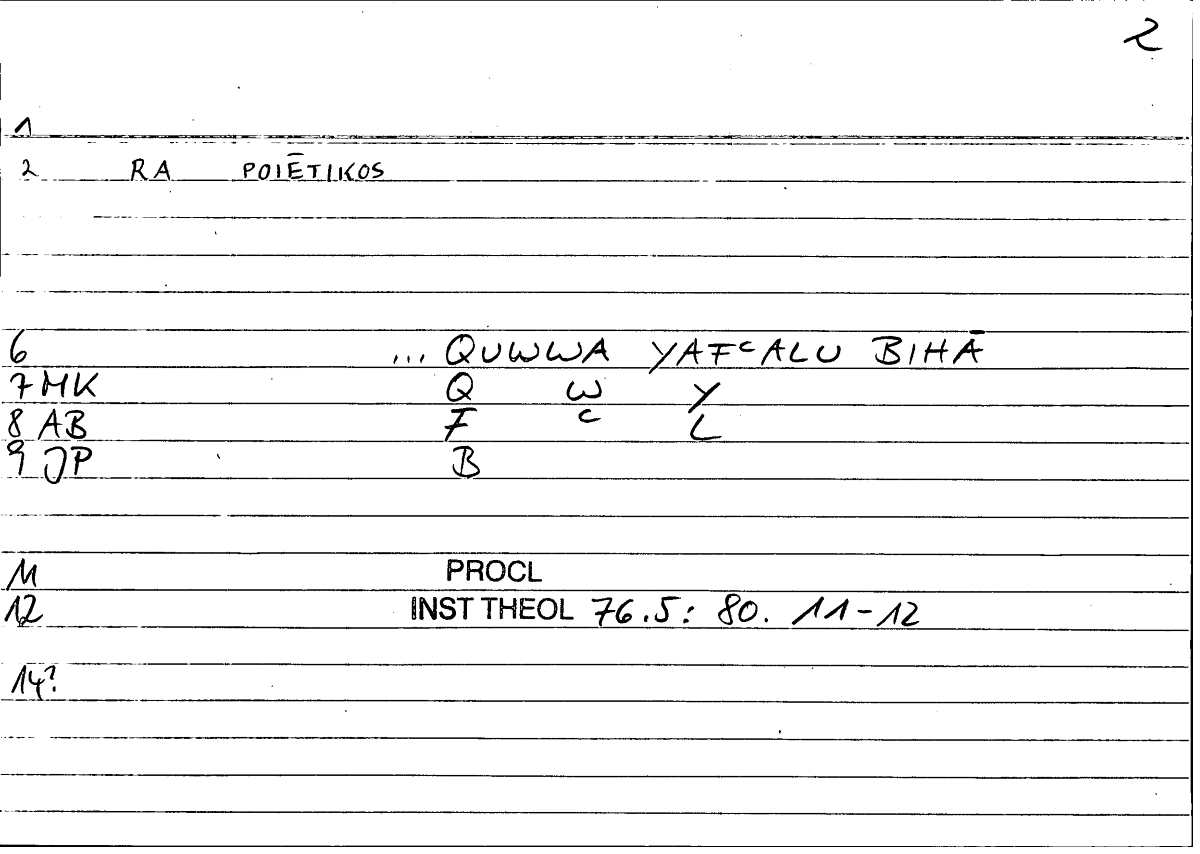 2
1
2 RA POIĒTIKOS
6 ... QUWWA YAFᶜALU BIHĀ
7 MK Q W Y
8 AB F ᶜ L
9 JP B
11 PROCL
12 INST THEOL 76.5: 80. 11-12
14?